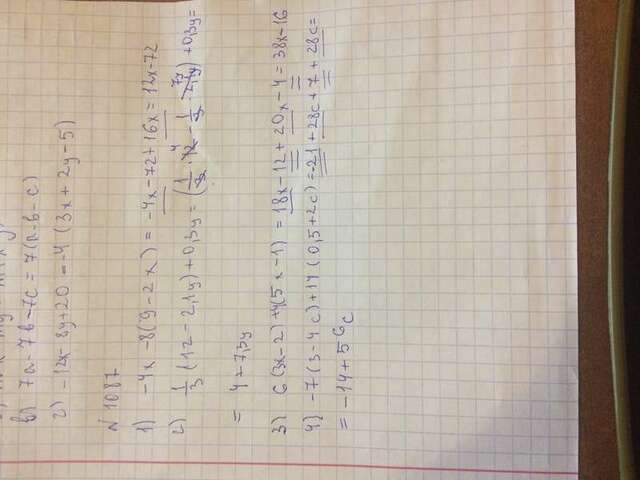 в) 7a-7b-7c = 7(a-b-c)
г) -12x-8y+20=-4(3x+2y-5)
N 1087
1) -4x-8(9-2x) = -4x-72+16x=12x-72
2) 1/3 (12-2,1y)+0,3y=(1/3·12-1/3·2,1y)+0,3y=
= 4+7,3y
3) 6(3x-2)+4(5x-1) = 18x-12+20x-4=38x-16
4) -7(3-4c)+14(0,5+2c)=-21+28c+7+28c=
= -14+56c